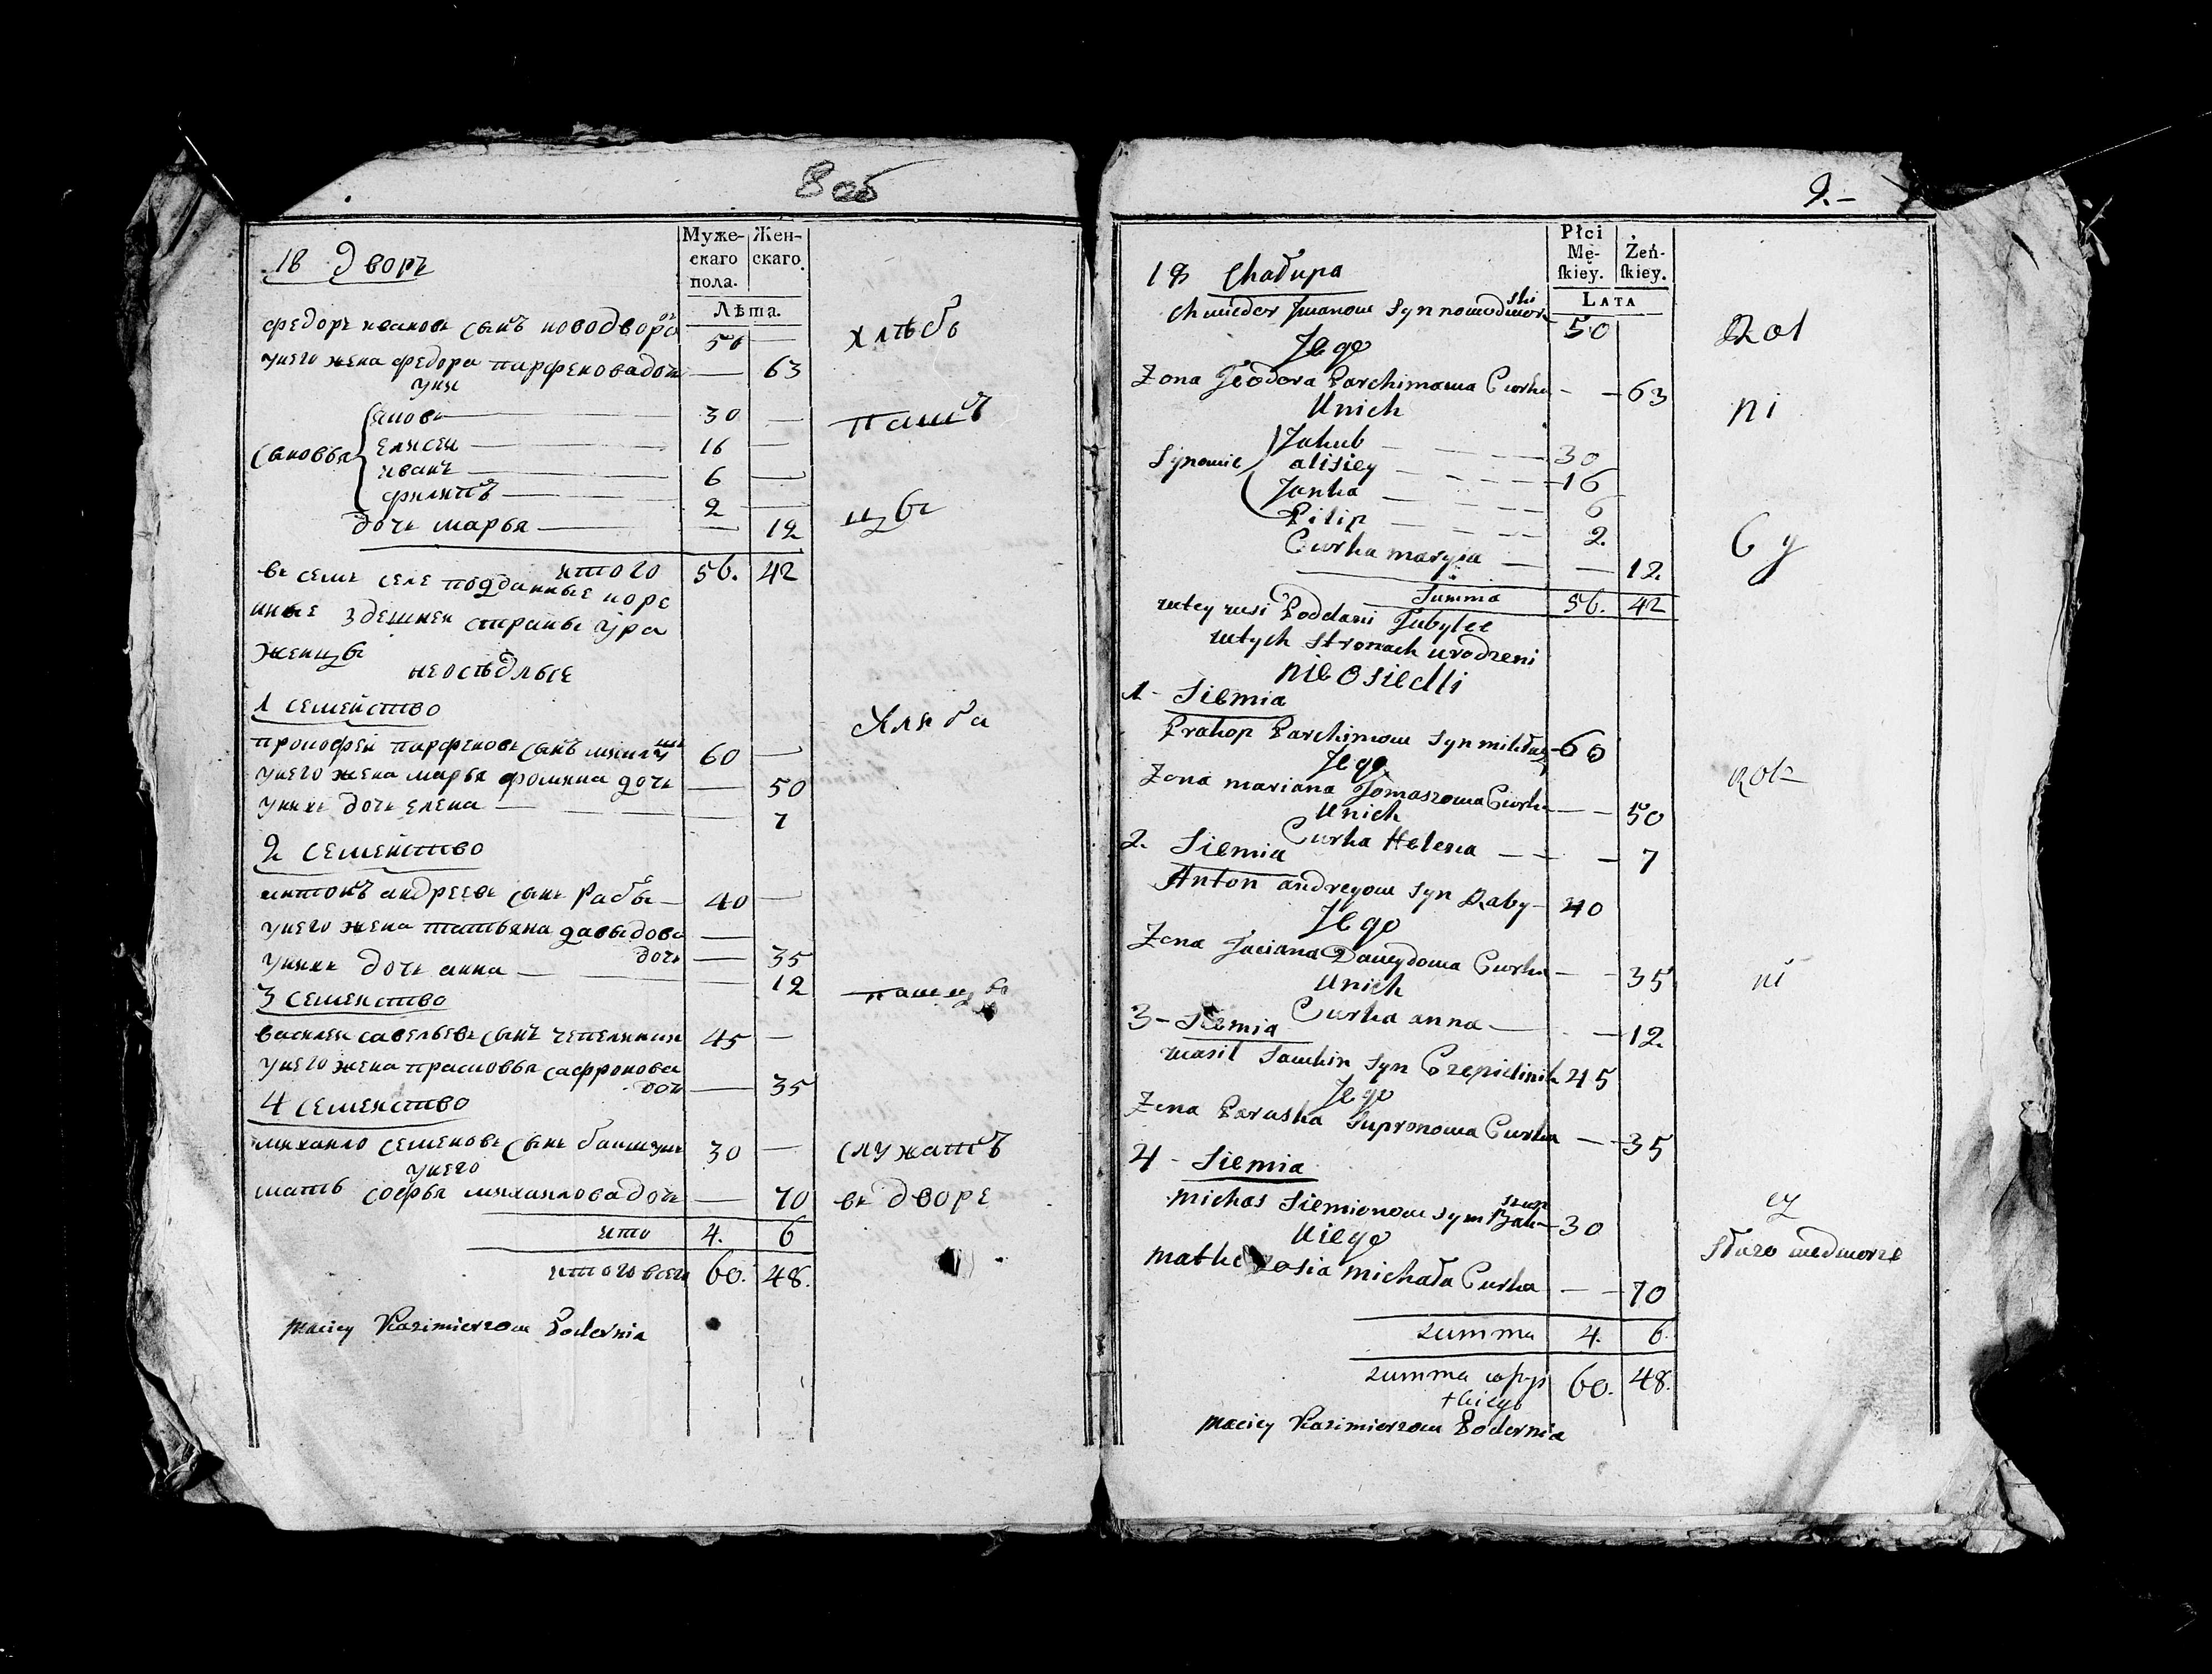 8 об
18 Дворъ
Муже-
скаго
пола.
Жен-
скаго
Лѣта.
Федоръ ивановъ сынъ новодворс
50 —
унего жена федора парфеновадочь
— 63
уних
Сыновья
яковъ — 30 —
елисеи — 16 —
иванъ — 6 —
филипъ — 2 —
дочь марья — — 12
итого 56. 42
хлѣбо
пашъ
цы
въ семъ селе подданные коре
нные здешнеи страны уро
женцы
неосѣдлые
1 семейство
прокофеи парфеновъ сынъ
60 —
унего жена марья фомина дочь
— 50
уних дочь елена — — 7
2 семейство
антонъ андреевъ сынъ Рабы — 40 —
унего жена татьяна давыдова
дочь — 35
уних дочь анна — — 12
3 семейство
василеи савельевъ сынъ
45 —
унего жена прасковья сафронова
дочь — 35
4 семейство
михаило семеновъ сынъ
30 —
унего
мать софья михаиловадочь — 70
ито 4. 6
итоговсего 60. 48.
хляба
пашцы
служатъ
въ дворе
Maciey Kazimierzow Podernia
9.-
18 Chałupa
Płci
Mę-
skiey.
Żeń-
skiey.
LATA
Chwiedor Jwanow Syn nowodwor
ski
50
Jego
Zona Teodora Parchimowa Curka - - 63
Unich
Synowie
Jakub - - 30
alisiey - - 16
Janka - - 6
Pilip - - 2.
Curka maryia — — 12.
Summa 56. 42
Rol
ni
cy
wtey wsi Poddani Jubylee
wtych Stronach urodzeni
nieosiedli
1 - Siemia
Prakop Parchimow Syn
60
Jego
Zona mariana Tomaszowa Curka — - 50
Unich
Curka Helena — - 7
2. Siemia
Anton andreyow Syn Raby - 40
Jego
Zona Taciana Dawydowa Curka - - 35
Unich
Curka anna — - 12.
3 - Siemia
wasil Sawkin Syn Czepielinik 45
Jego
Zona Paraska Supronowa Curka — 35
4 - Siemia
michas Siemionow Syn
30
Uiego
matka zosia michała Curka — - 70
summa 4. 6.
summa
60. 48.
Rol
ni
cy
Służo wedworze
Maciey Kazimierzow Podernia